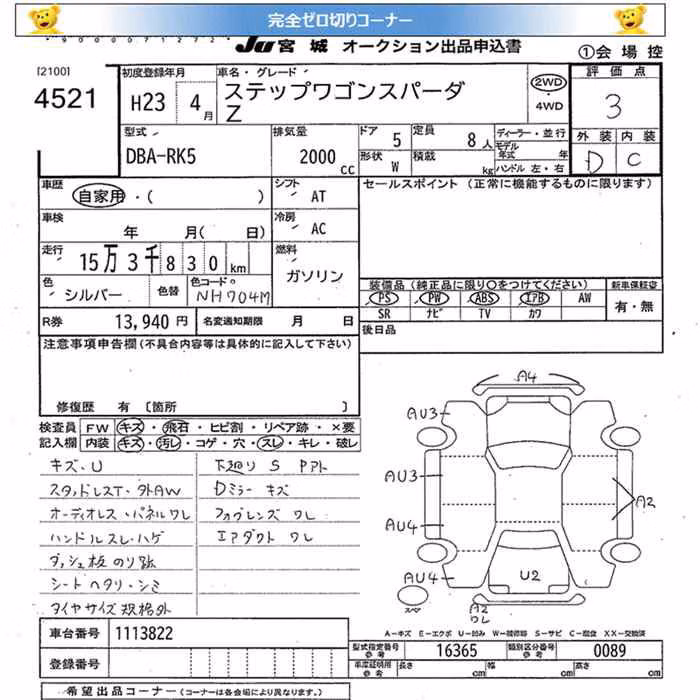 完全ゼロ切りコーナー
JU宮城 オークション出品申込書
①会場控
[2100]
4521
初度登録年月
H23 4月
車名・グレード
ステップワゴンスパーダ
Z
2WD
4WD
評価点
3
外装 内装
D C
型式
DBA-RK5
排気量
2000 cc
ドア 5
定員 8人
形状 W
積載 kg
ディーラー・並行
モデル年式 年
ハンドル 左・右
車歴
自家用・( )
シフト
AT
セールスポイント (正常に機能するものに限ります)
車検
年 月( 日)
冷房
AC
走行
15万3千830km
燃料
ガソリン
色
シルバー
色替
色コードNo.
NH704M
装備品 (純正品に限り○をつけてください)
新車保証書
PS PW ABS エアB AW
SR ナビ TV カワ
有・無
R券 13,940円
名変通知期限 月 日
後日品
注意事項申告欄 (不具合内容等は具体的に記入して下さい)
修復歴 有 [箇所 ]
検査員 FW キズ・飛石・ヒビ割・リペア跡・×要
記入欄 内装 キズ・汚レ・コゲ・穴・スレ・キレ・破レ
キズ、U
スタッドレスT・外AW
オーディオレス・パネルワレ
ハンドルスレ・ハゲ
ダッシュ板のり跡
シートヘタリ・シミ
タイヤサイズ規格外
下廻りS Pアト
Dミラーキズ
フォグレンズワレ
エアダクトワレ
A4
AU3
AU3
AU4
AU4
A2
U2
A2
ワレ
スペア
A-キズ E-エクボ U-凹み W-補修跡 S-サビ C-腐食 XX-交換済
車台番号 1113822
登録番号
型式指定番号 参考 16365
類別区分番号 参考 0089
車庫証明用 参考 長さ cm 幅 cm 高さ cm
希望出品コーナー (コーナーは各会場により異なります。)